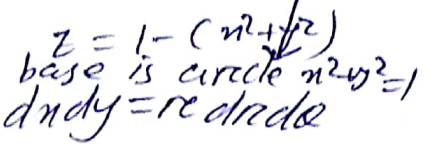 z = 1 - (x²+y²)
base is circle x²+y²=1
dxdy = r drdθ